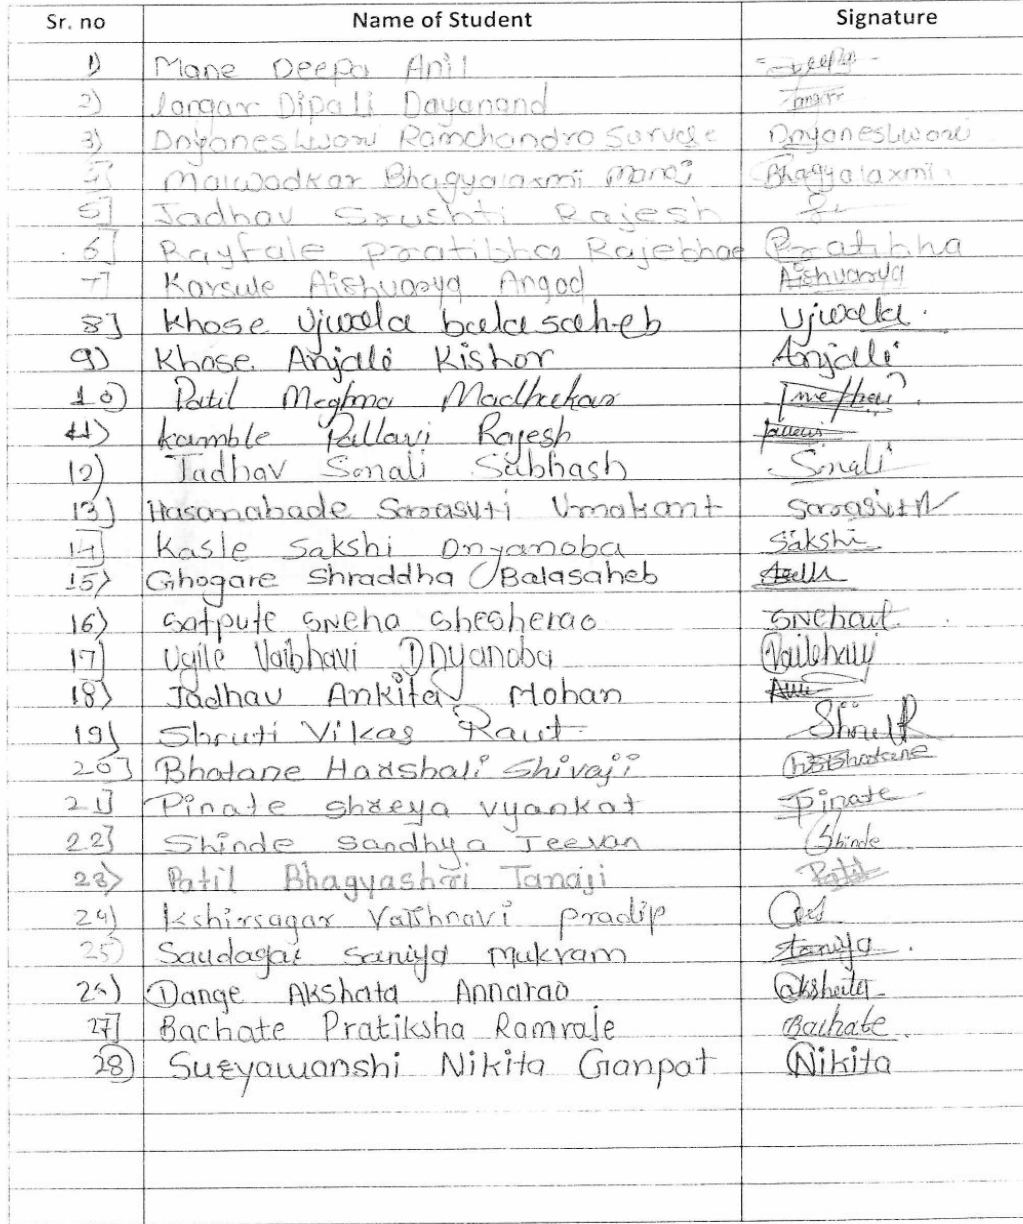 Sr. no Name of Student Signature
1) Mane Deepa Anil Deepa
2) Jangar Dipali Dayanand Jangar
3) Dnyaneshwari Ramchandra Survase Dnyaneshwari
4] Malwadkar Bhagyalaxmi Manoj Bhagyalaxmi
5] Jadhav Srushti Rajesh
6] Rayfale Pratibha Rajebhae Pratibha
7] Karsule Aishvarya Angad Aishvarya
8] Khose Ujwala balasaheb Ujwala.
9) Khose Anjali Kishor Anjali
10) Patil Meghna Madhukar
11) Kamble Pallavi Rajesh Pallavi
12) Jadhav Sonali Subhash Sonali
13) Hasanabade Sarasvti Umakant Sarasvti
14] Kasle Sakshi Dnyanoba Sakshi
15) Ghogare Shraddha Balasaheb
16) Satpute Sneha Shesherao
17] Ugile Vaibhavi Dnyanoba Vaibhavi
18) Jadhav Ankita Mohan
19) Shruti Vikas Raut
20] Bhatane Harshali Shivaji
21] Pinate Shreya Vyankat Pinate
22] Shinde Sandhya Jeevan Shinde
23) Patil Bhagyashri Tanaji Patil
24) Kshirsagar Vaishnavi Pradip
25) Saudagar Saniya Mukram Saniya.
26) Dange Akshata Annarao Akshata
27] Bachate Pratiksha Ramraje Bachate.
28) Suryawanshi Nikita Ganpat Nikita